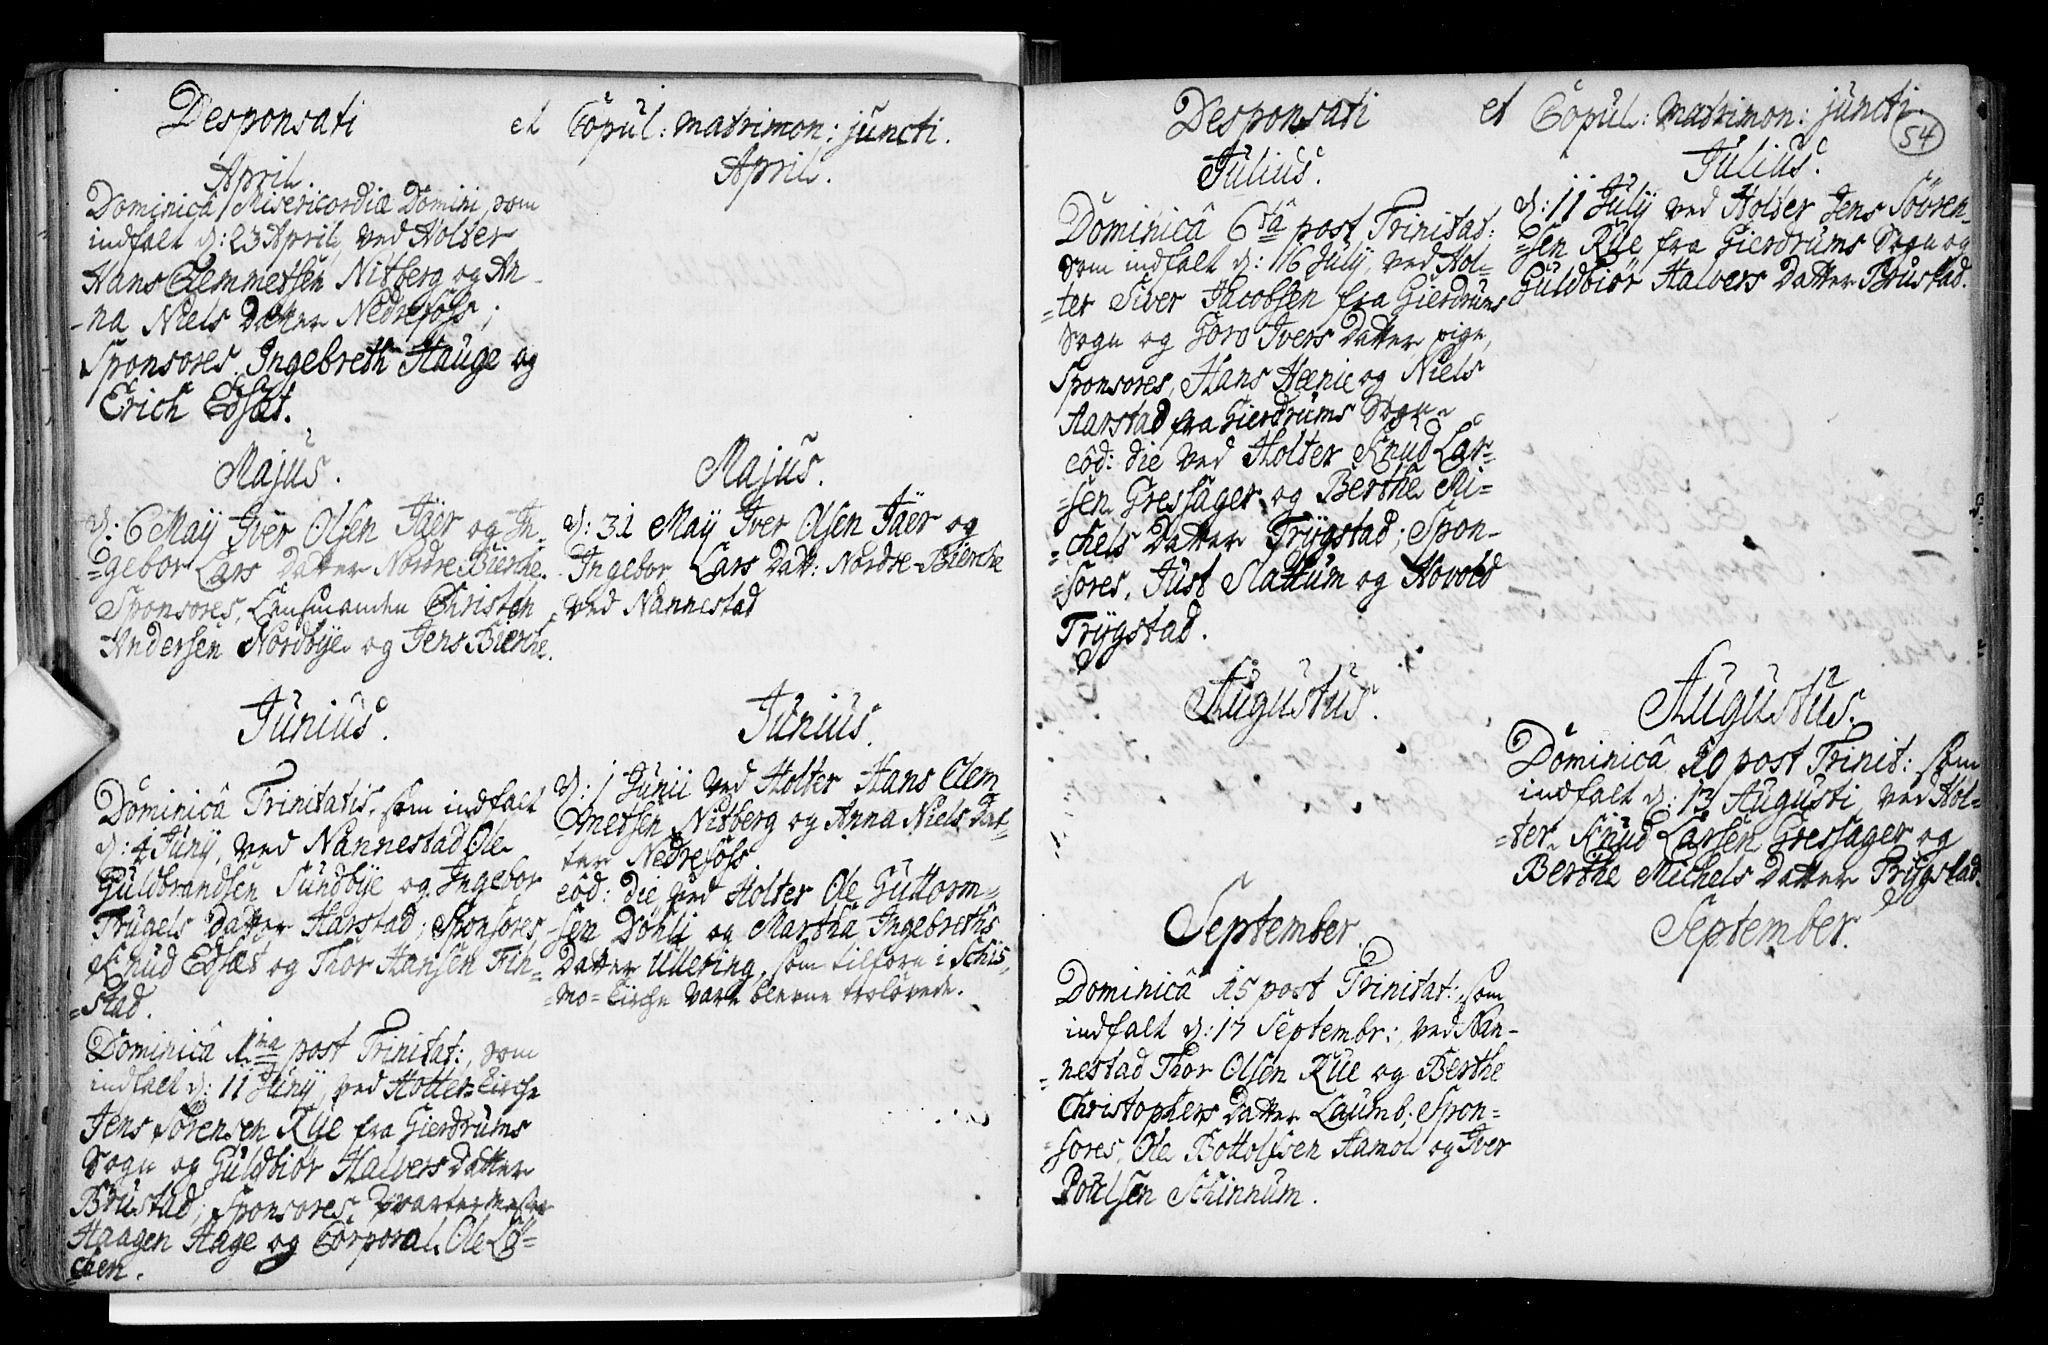 Desponsati et Copul: matrimon: juncti.
April.
Dominicâ Misericordiæ Domini, som
indfalt d: 23 April, ved Holter
Hans Clemmetsen Nitberg og An-
-na Niels Datter Nedresöss;
Sponsores. Ingebreth Hauge og
Erich Edsæt.
Majus.
d: 6 Maÿ Iver Olsen Jäer og In-
=gebor Lars Datter Nordre Bierche.
Sponsores, Lensmanden Christen
Andersen Nordbÿe og Jens Bierche.
Junius.
Dominicâ Trinitatis, som indfalt
d: 4 Junÿ, ved Nannestad Ole
Guldbrandsen Sundbÿe og Ingebor
Trugels Datter Harstad; Sponsores,
Knud Edsæt og Thor Hansen Fin-
=stad.
Dominicâ 1ma post Trinitat:, som
indfalt d: 11 Junÿ, ved Holter Kirche
Jens Sörensen Rÿe fra Gierdrums
Sogn og Guldbiör Halvers Datter
Brustad; Sponsores Qvartermester
Haagen Hage og Corporal Ole Lö-
=chen.
April.
Majus.
d: 31 Maÿ Iver Olsen Jäer og
Ingebor Lars Datt: Nordre Bierche
ved Nannestad
Junius.
d: 1 Junii ved Holter Hans Clem
=metsen Nitberg og Anna Niels Dat-
ter Nedresöss
eôd: die ved Holter Ole Guttorm=
sen Döhli og Martha Ingebreths
Datter Ullering, som tilforn i Schis-
=mo=Kirche vare blevne trolovede.
Desponsati et Copul: matrimon: juncti.
54
Julius.
Dominicâ 6ta post Trinitat:
som indfalt d: 16 Julÿ, ved Hol=
=ter Siver Jacobsen fra Gierdrums
Sogn og Goro Ivers Datter pige,
Sponsores, Hans Hænie og Niels
Aarstad fra Gierdrums Sogn
eôd: die ved Holter Knud Lar=
=sen Gressager og Berthe Mi=
=chels Datter Trÿgstad; Spon-
=sores, Just Slattum og Hovold
Trÿgstad.
Augustus.
September.
Dominicâ 15 post Trinitat:, som
indfalt d: 17 Septembr:, ved Nan-
=nestad Thor Olsen Rüe og Berthe
Christophers Datter Laumb; Spon=
=sores, Ole Bottolfsen Hamol og Iver
Povelsen Schinnum.
Julius.
d: 11 Julÿ ved Holter Jens Sören-
=sen Rÿe fra Gierdrums Sogn og
Guldbiör Halvers Datter Brustad.
Augustus.
Dominicâ 10 post Trinit: som
indfalt d: 13 Augusti, ved Hol=
=ter Knud Larsen Gressager og
Berthe Michels Datter Trÿgstad.
September.